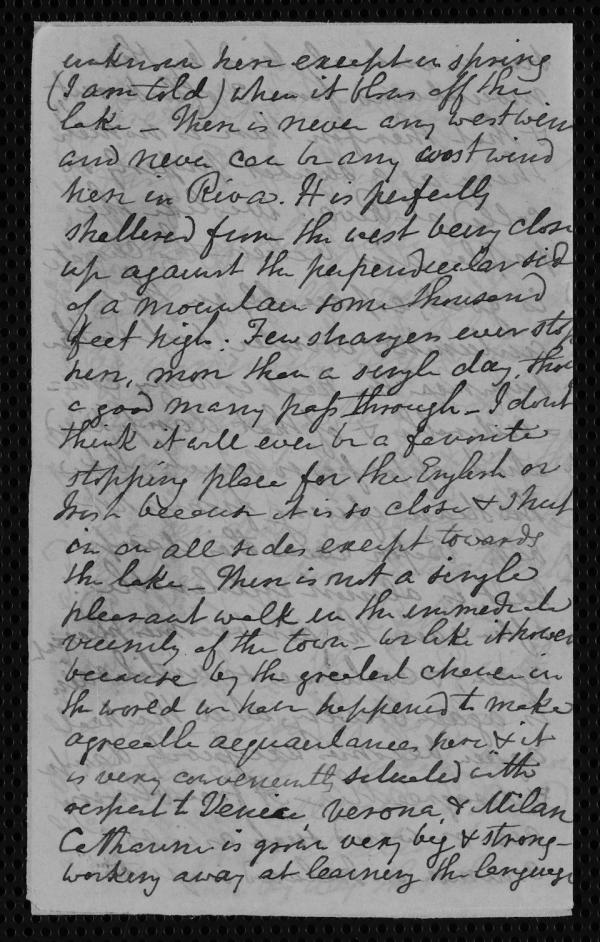 unknown here except in spring
(I am told) when it blows off the
lake - There is never any west win
and never can be any west wind
here in Riva. It is perfectly
sheltered from the west being close
up against the perpendicular sid
of a mountain some thousand
feet high. Few strangers ever stop
here, more than a single day, thou
a good many pass through - I dont
think it will ever be a favorite
stopping place for the English or
Irish because it is so close & shut
in on all sides except towards
the lake - There is not a single
pleasant walk in the immediate
vicinity of the town - we like it howev
because by the greatest chance in
the world we have happened to make
agreeable acquaintances here & it
is very conveniently situated with
respect to Venice, Verona, & Milan
Catherine is grown very big & strong -
working away at learning the language